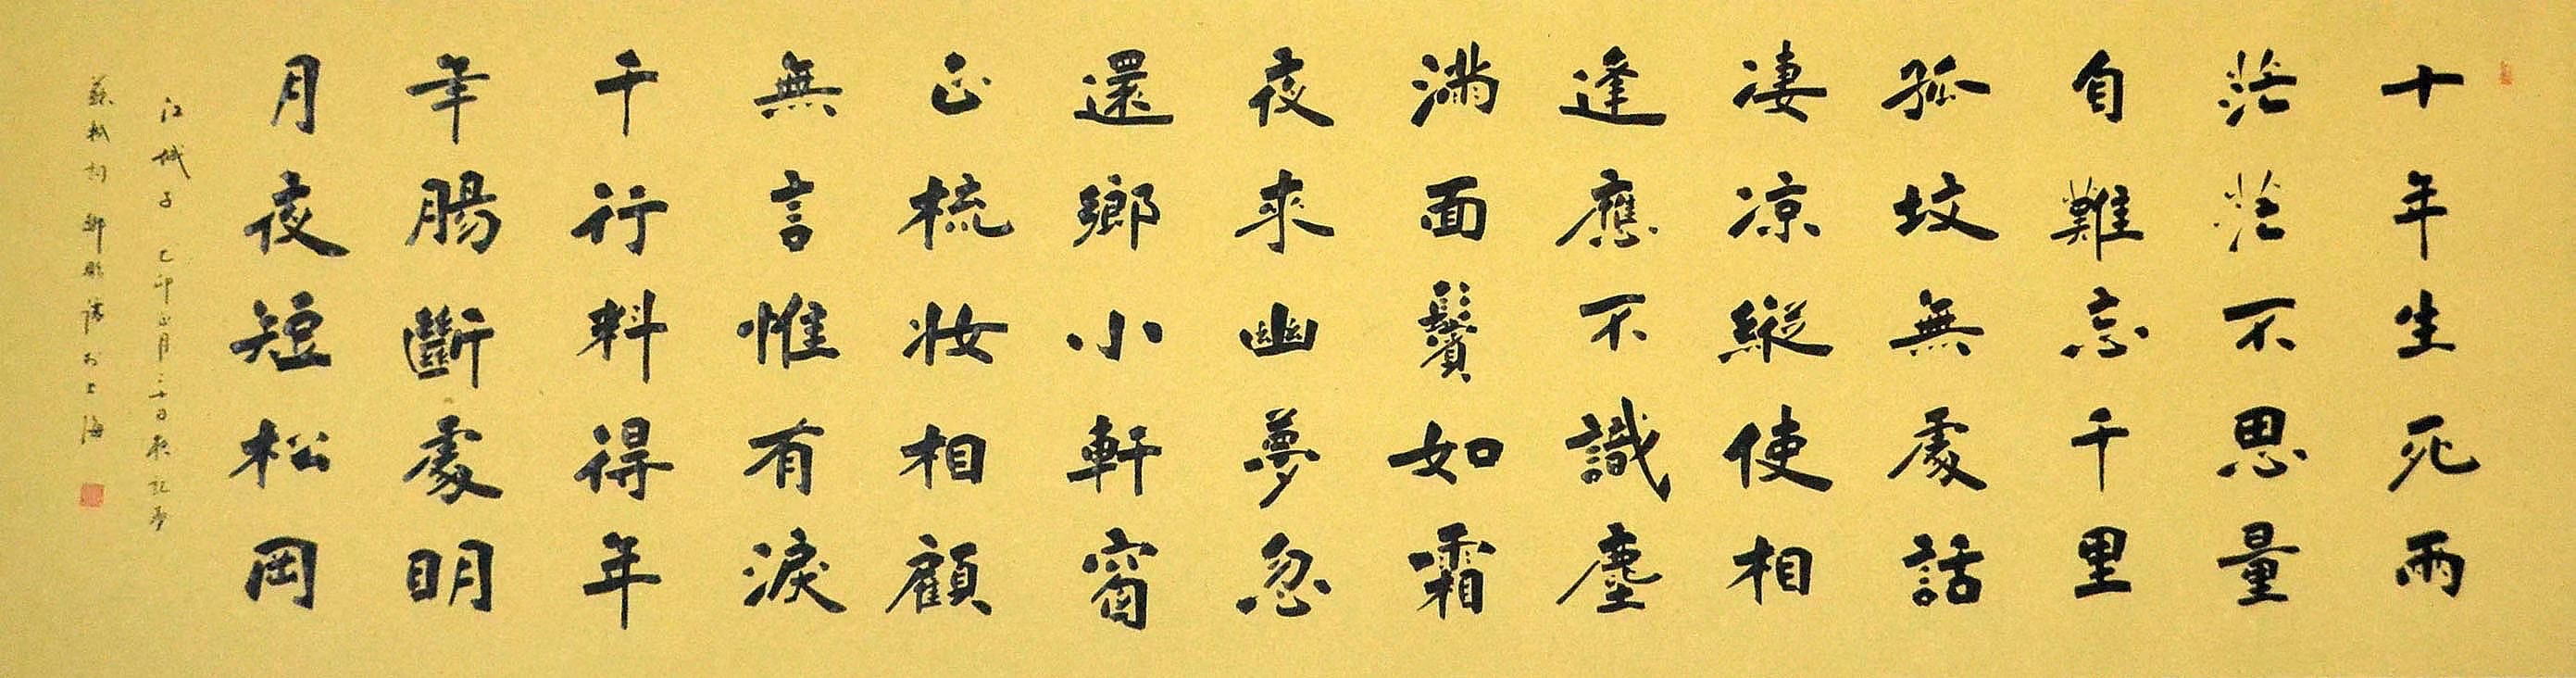 十年生死兩
茫茫不思量
自難忘千里
孤坟無處話
凄凉縱使相
逢應不識塵
滿面鬢如霜
夜來幽夢忽
還鄉小軒窗
正梳妝相顧
無言惟有淚
千行料得年
年腸斷處明
月夜短松岡
江城子 乙卯正月二十日夜記夢
蘇軾詞 於上海